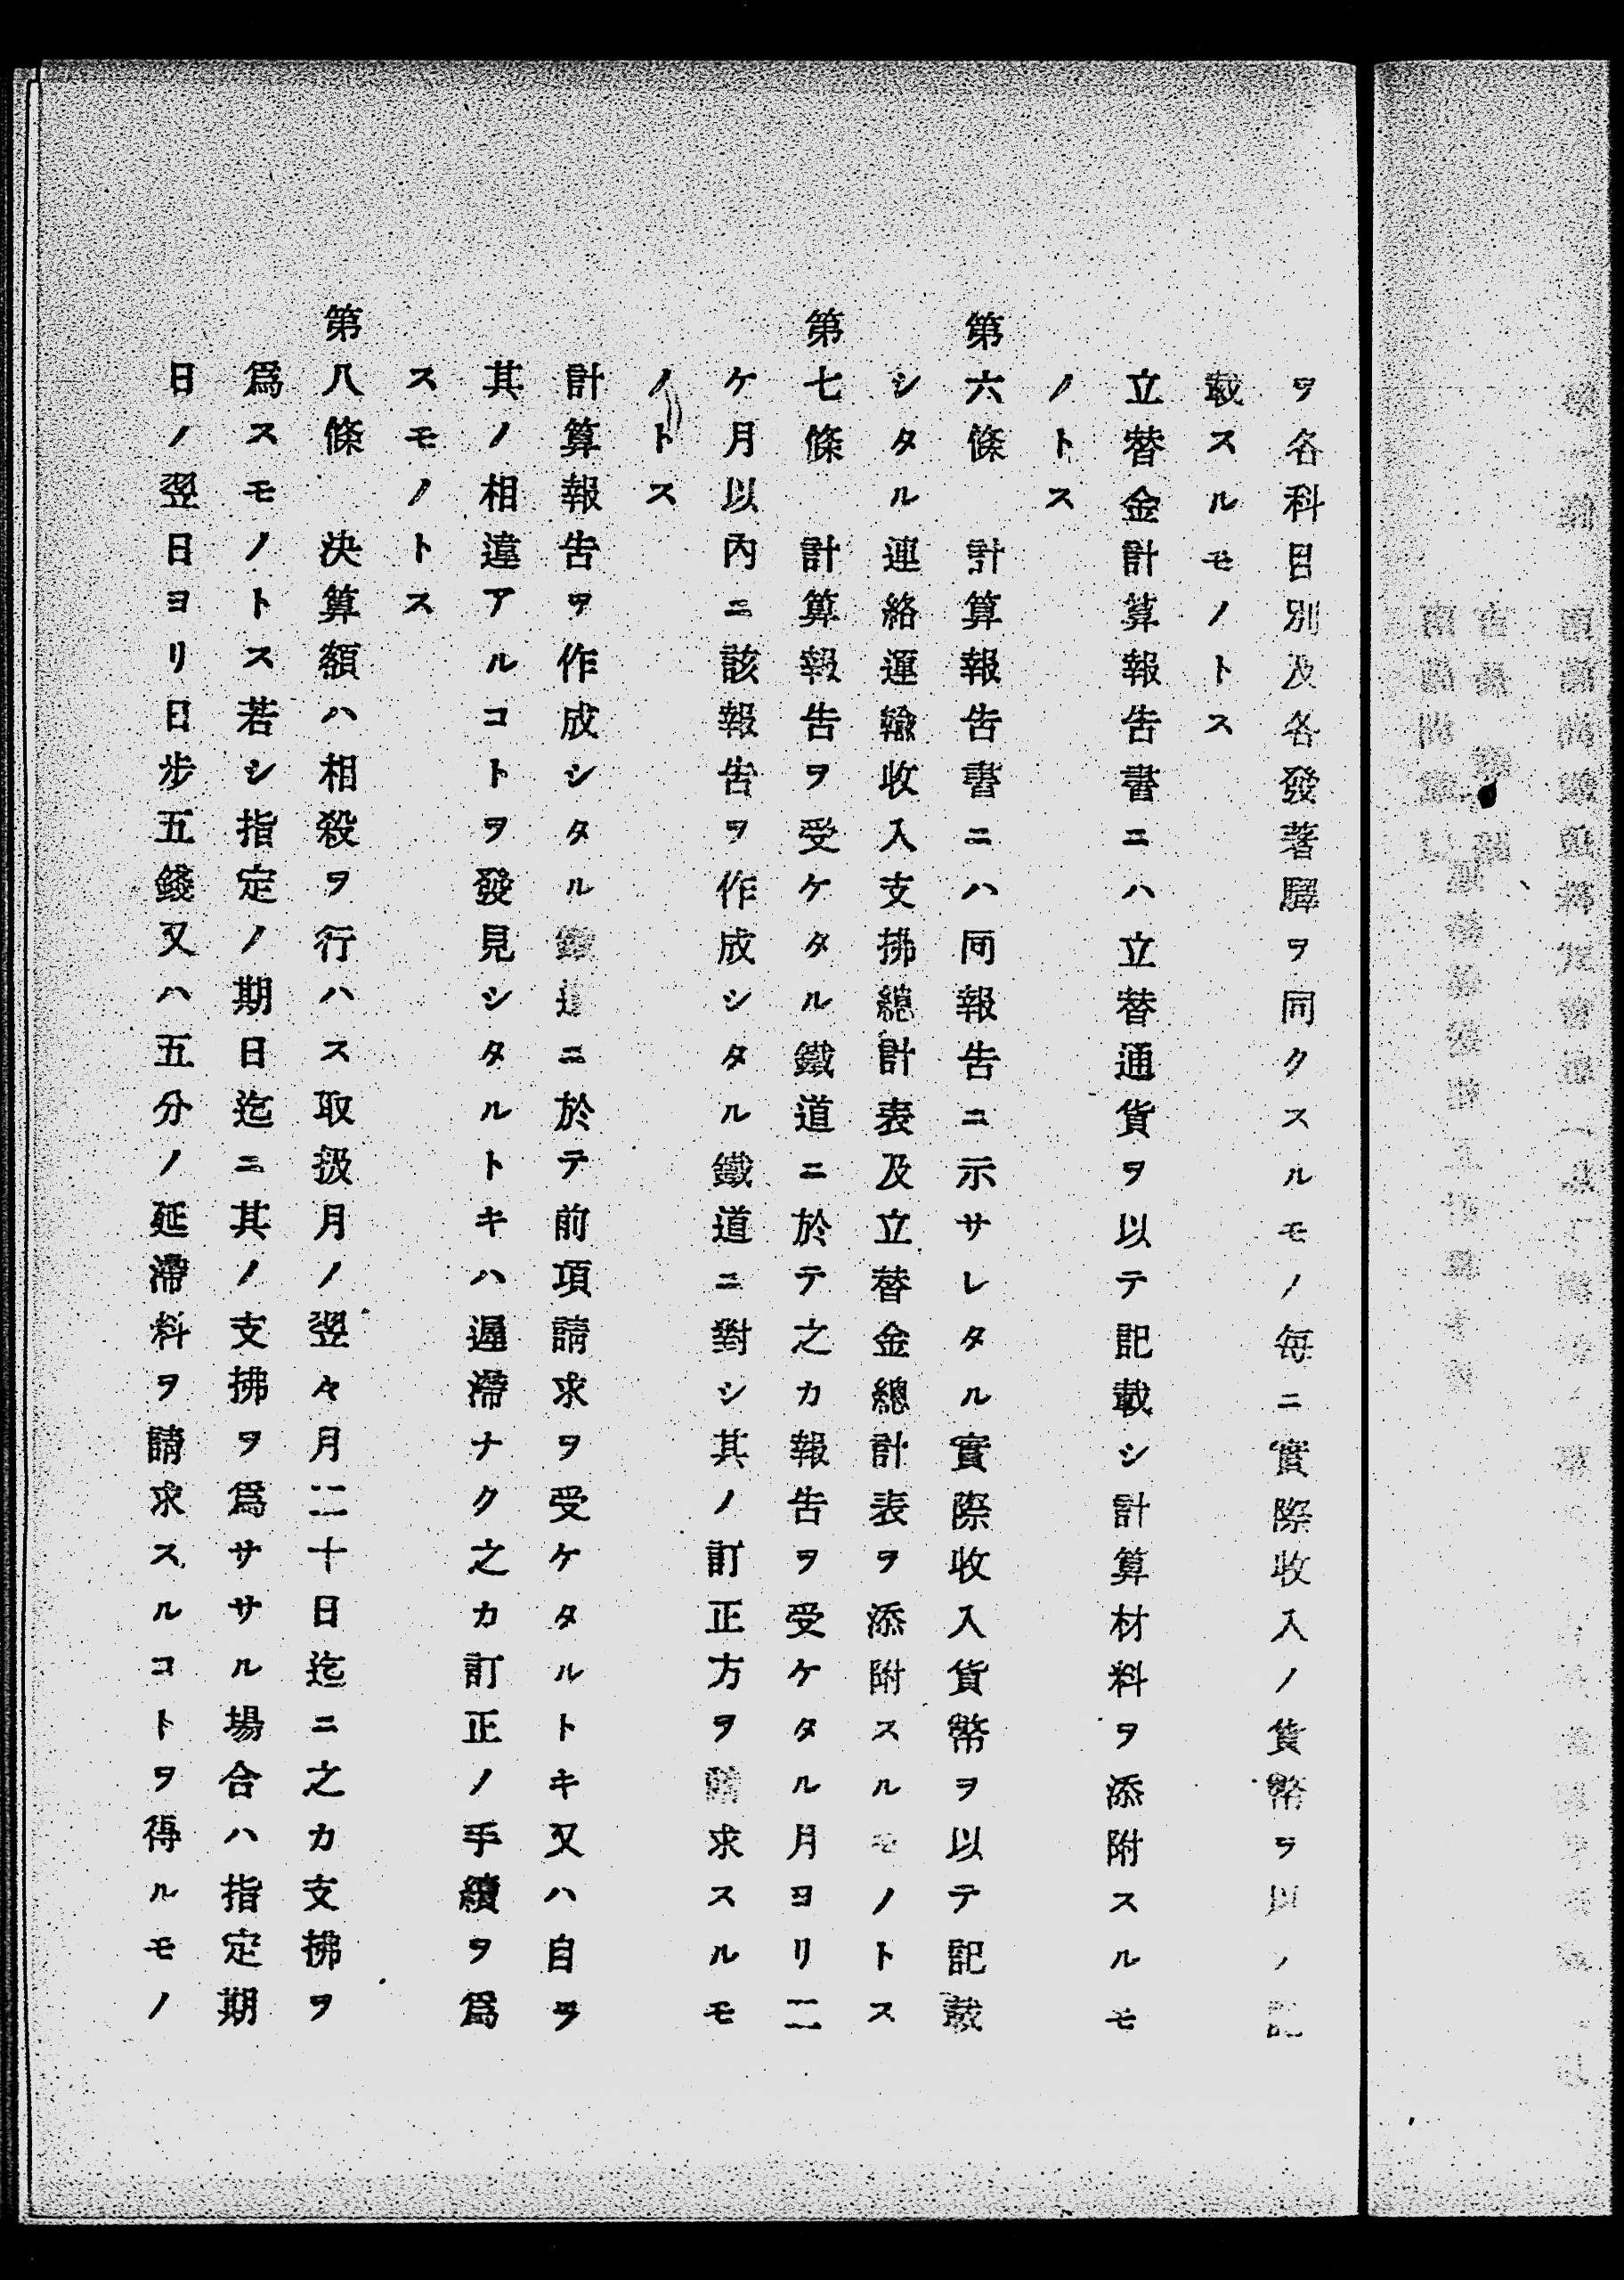 ヲ各科目別及各發著驛ヲ同クスルモノ每ニ實際收入ノ貨幣ヲ以ノ記
載スルモノトス
立替金計算報告書ニハ立替通貨ヲ以テ記載シ計算材料ヲ添附スルモ
ノトス
第六條 計算報告書ニハ同報告ニ示サレタル實際收入貨幣ヲ以テ記載
シタル連絡運輸收入支拂總計表及立替金總計表ヲ添附スルモノトス
第七條 計算報告ヲ受ケタル鐵道ニ於テ之カ報告ヲ受ケタル月ヨリ二
ケ月以內ニ該報告ヲ作成シタル鐵道ニ對シ其ノ訂正方ヲ請求スルモ
ノトス
計算報告ヲ作成シタル鐵道ニ於テ前項請求ヲ受ケタルトキ又ハ自ラ
其ノ相違アルコトヲ發見シタルトキハ遲滯ナク之カ訂正ノ手續ヲ爲
スモノトス
第八條 決算額ハ相殺ヲ行ハス取扱月ノ翌々月二十日迄ニ之カ支拂ヲ
爲スモノトス若シ指定ノ期日迄ニ其ノ支拂ヲ爲ササル場合ハ指定期
日ノ翌日ヨリ日步五錢又ハ五分ノ延滯料ヲ請求スルコトヲ得ルモノ